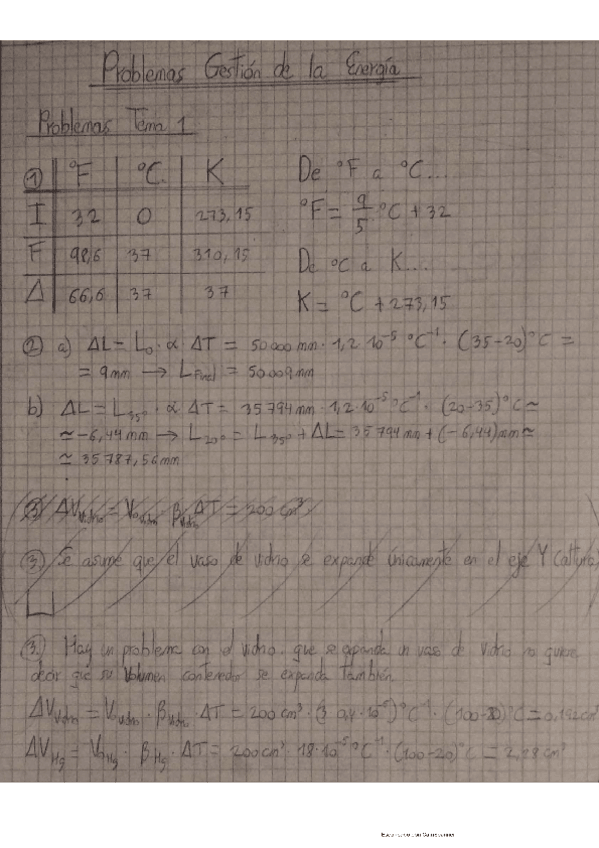 Problemas Gestión de la Energía
Problemas Tema 1
① °F °C K
I 32 0 273,15
F 98,6 37 310,15
Δ 66,6 37 37
De °F a °C...
°F = 9/5 °C + 32
De °C a K....
K = °C + 273,15
② a) ΔL = L₀ · α · ΔT = 50000 mm · 1,2 · 10⁻⁵ °C⁻¹ · (35-20)°C =
= 9mm → L Final = 50009mm
b) ΔL = L₃₅° · α ΔT = 35794mm · 1,2·10⁻⁵ °C⁻¹ · (20-35)°C ≃
≃ -6,44mm → L₂₀° = L₃₅° + ΔL = 35794mm + (-6,44)mm ≃
≃ 35787,56mm
③ ΔV vidrio = V₀ vidrio β vidrio ΔT = 200 cm³
③ Se asume que el vaso de vidrio se expande únicamente en el eje Y (altura)
③ Hay un problema con el vidrio, que se expanda un vaso de vidrio no quiere
decir que su Volumen contenedor se expanda también
ΔV vidrio = V vidrio · β vidrio · ΔT = 200 cm³ · (3 · 0,4·10⁻⁵)°C⁻¹ · (100-20)°C = 0,192cm³
ΔV Hg = V₀ Hg · β Hg · ΔT = 200cm³ · 18·10⁻⁵ °C⁻¹ · (100-20)°C = 2,88 cm³
Escaneado con CamScanner